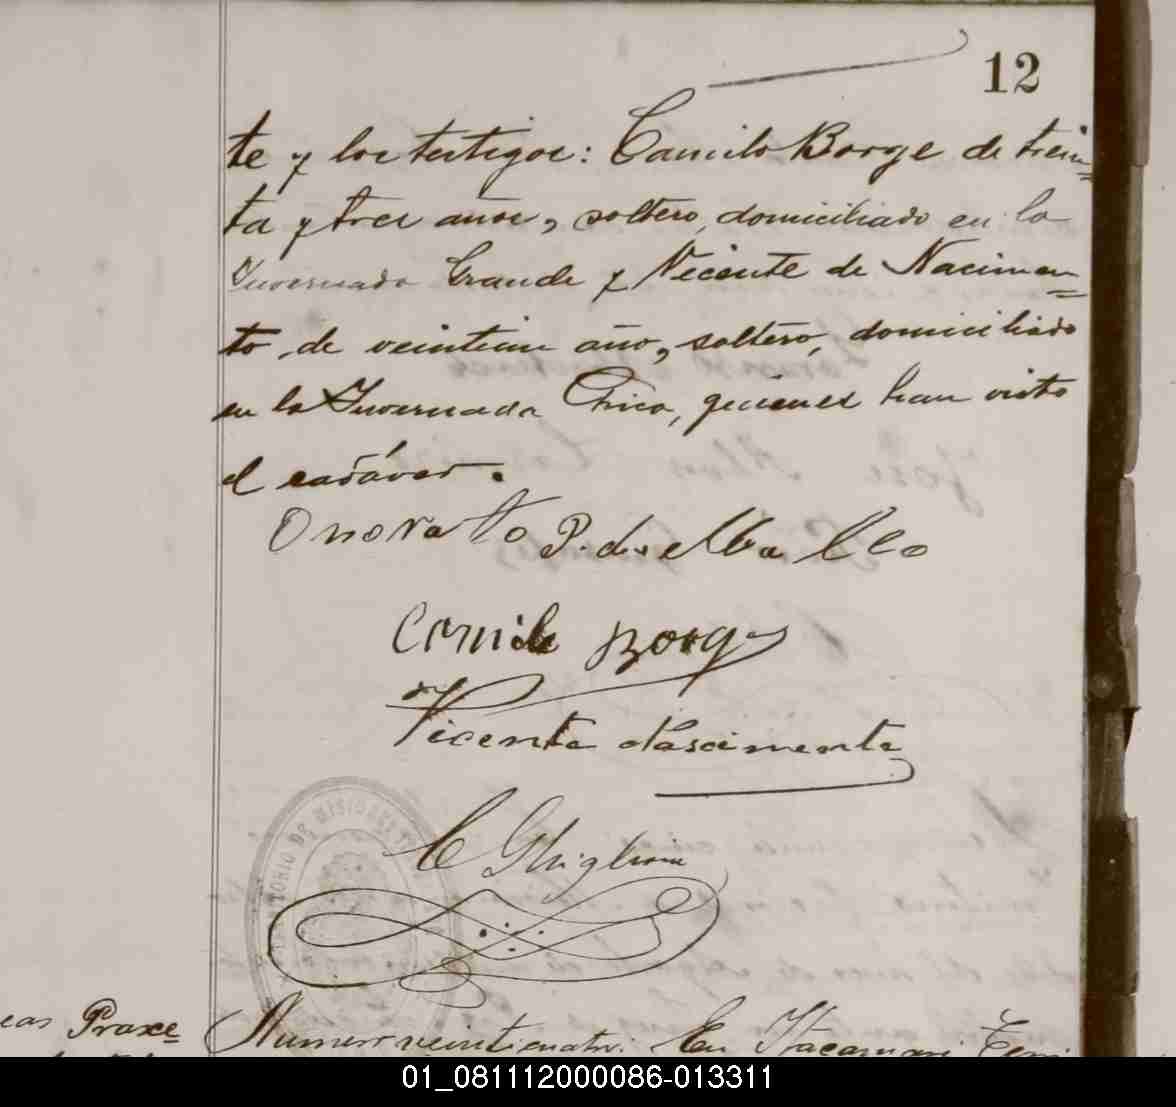 12
te y los testigos: Camilo Borge de trein=
ta y tres años, soltero, domiciliado en la
Invernada Grande y Vicente de Nacimen=
to, de veintiun año, soltero, domiciliado
en la Invernada Chica, quienes han visto
el cadáver.
Onorato P. de
Camilo Borges
Vicente Nascimento
C Ghiglione
TERRITORIO DE MISIONES
eas Praxe
Numero veinticuatro: En Itacaruaré, Terri
01_081112000086-013311